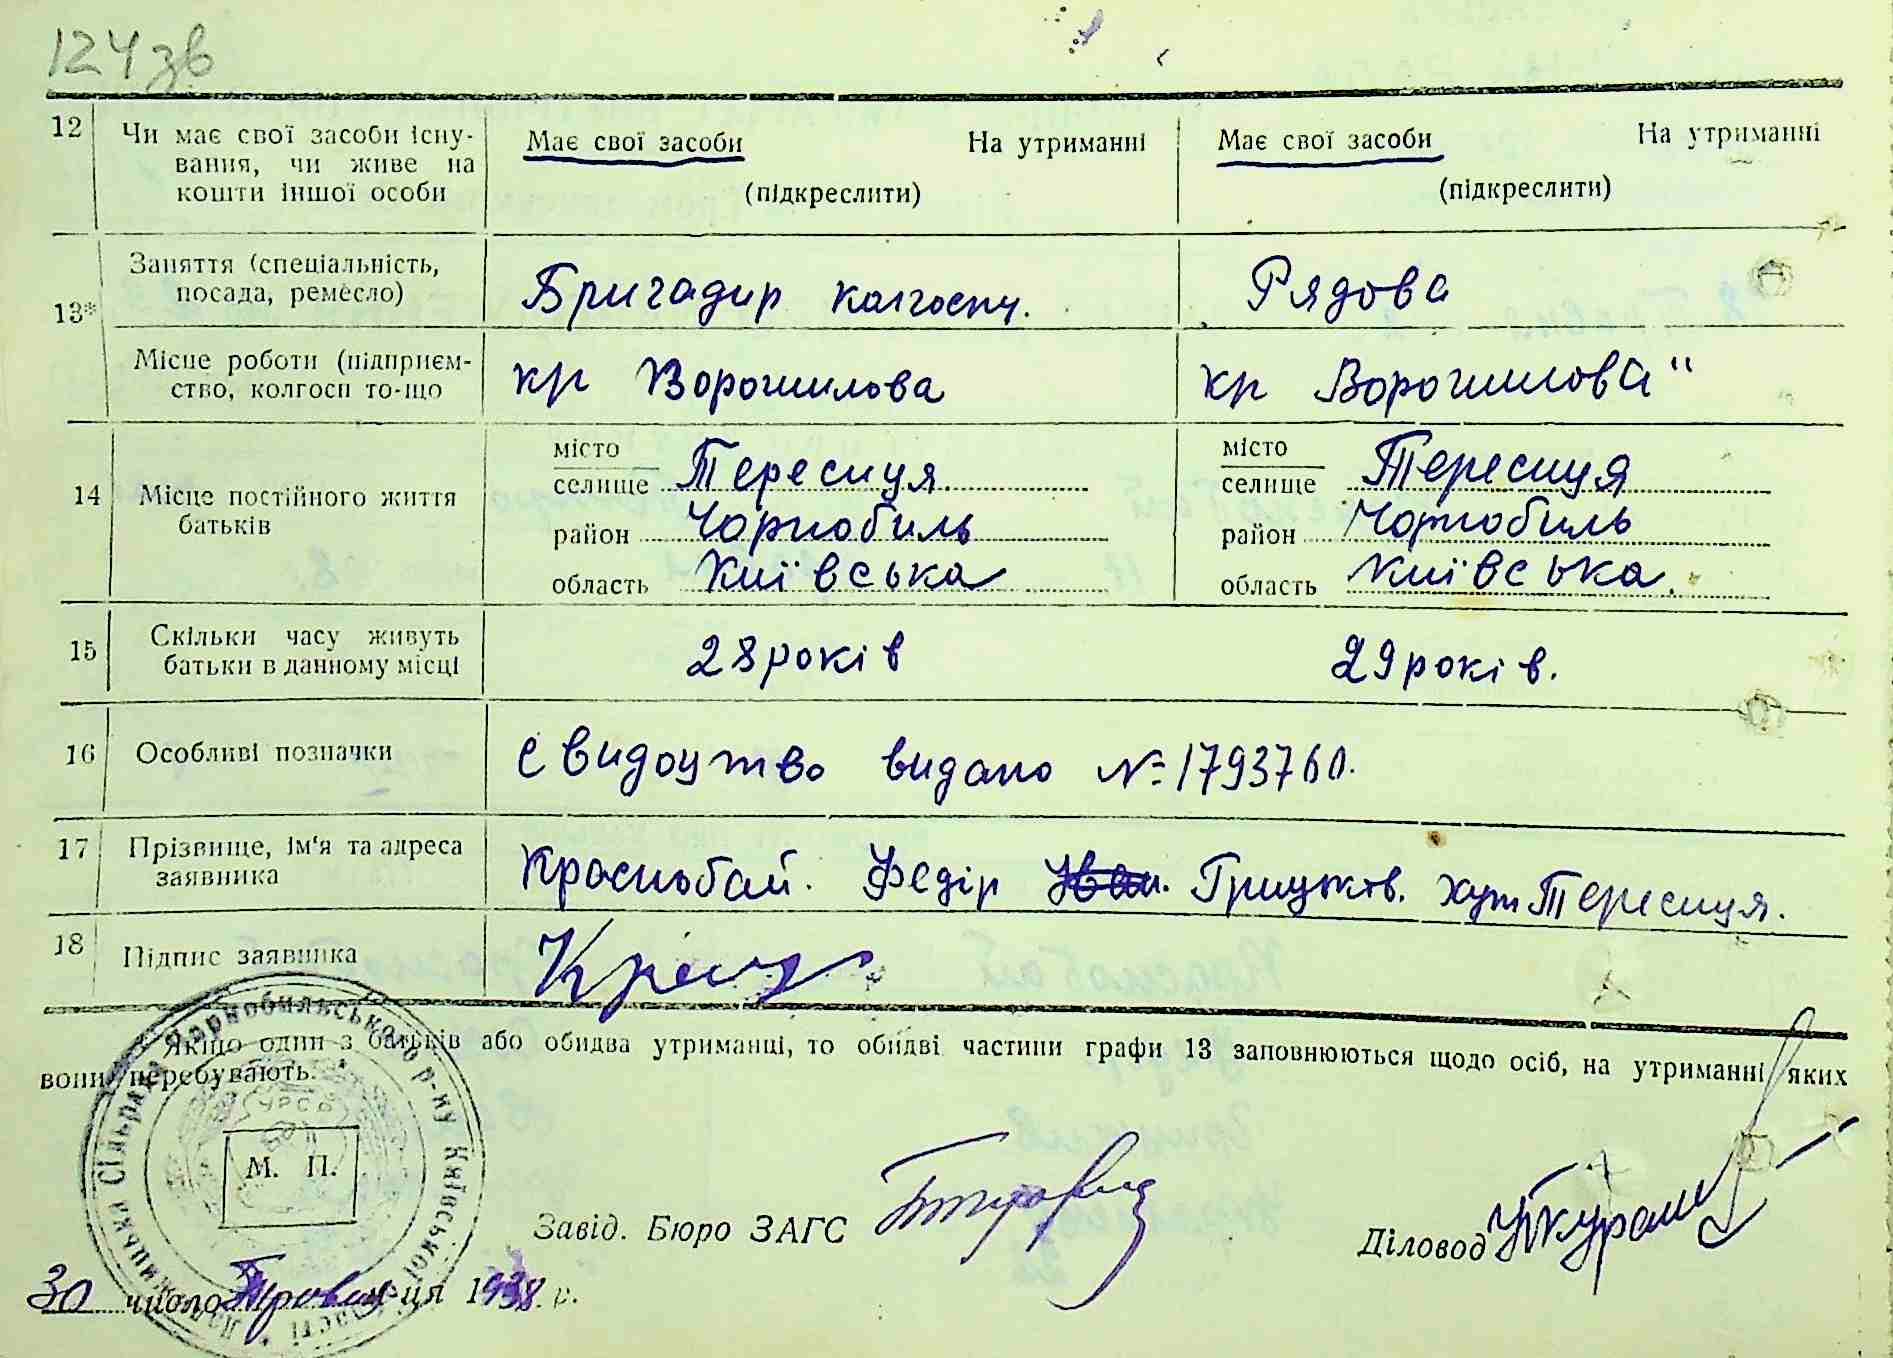 124зв
12 Чи має свої засоби існу-
вання, чи живе на
кошти іншої особи
Має свої засоби На утриманні
(підкреслити)
Має свої засоби На утриманні
(підкреслити)
13*
Заняття (спеціальність,
посада, ремесло)
Бригадир колгоспу.
Рядова
Місце роботи (підприєм-
ство, колгосп то-що
кр Ворошилова
кр Ворошилова"
14 Місце постійного життя
батьків
місто
селище Тересиця
район Чорнобиль
область Київська
місто
селище Тересиця
район Чорнобиль
область Київська.
15 Скільки часу живуть
батьки в данному місці
28 років
29 років.
16 Особливі позначки
Свидоцтво видано № 1793760.
17 Прізвище, ім'я та адреса
заявника
Краснобай. Федір Грицьков. хут Тересиця.
18 Підпис заявника
Якщо один з батьків або обидва утриманці, то обидві частини графи 13 заповнюються щодо осіб, на утриманні яких
вони перебувають.
Сільрада Чорнобильського р-ну Київської області
УРСР
М. П.
Завід. Бюро ЗАГС
Діловод
30 число м-ця 1938 р.